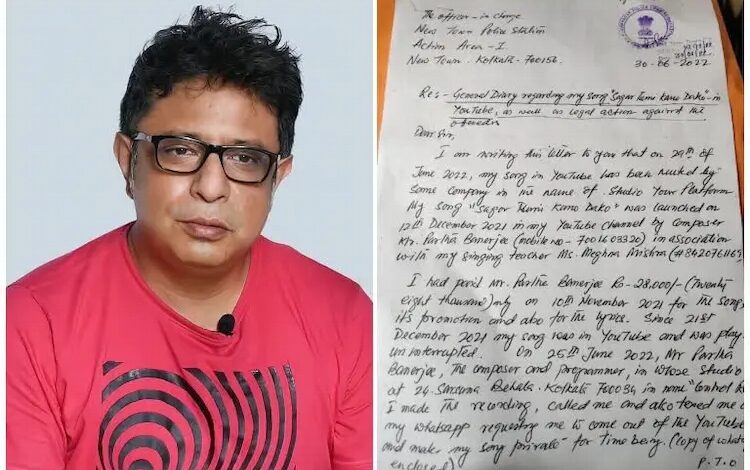 The officer-in charge
New Town Police Station
Action Area - I
New Town. Kolkata - 700156
30-06-2022
Re:- General Diary regarding my song "Sagar Tumi Kano Dako" - in
YouTube, as well as legal action against the
Dear Sir,
I am writing this letter to you that on 29th of
June 2022, my song in YouTube has been muted by
some company in the name of Studio Your Platform
My song "Sagor Tumi Kano Dako" was launched on
12th December 2021 in my YouTube channel by composer
Mr. Partha Banerjee (mobile no- 7001603320) in association
with my singing teacher Ms. Meghna Mishra (#8420761169
I had paid Mr. Partha Banerjee Rs- 28,000/- (Twenty
eight thousand) only on 10th November 2021 for the song,
its promotion and also for the lyrics. Since 21st
December 2021 my song was in YouTube and was play
uninterrupted. On 25th June 2022, Mr Partha
Banerjee, the composer and programmer, in whose studio
at 24. Behala. Kolkata 700034 in name
I made the recording, called me and also texted me o
my whatsapp requesting me to come out of the YouTube
and make my song private" for time being. (copy of whats
enclosed)
P.T.O